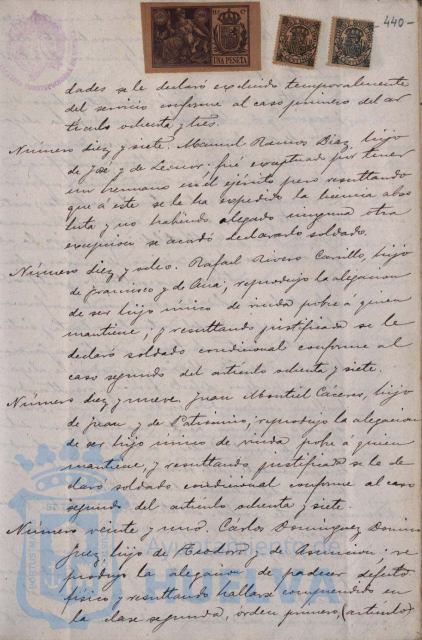 -440-
UNA PESETA
dades se le declaró excluido temporalmente
del servicio conforme al caso primero del ar
tículo ochenta y tres.
Número diez y siete. Manuel Ramos Diaz, hijo
de José y de Leonor. fué exceptuado por tener
un hermano en el ejército pero resultando
que á éste se le ha expedido la licencia abso
luta y no habiendo alegado ninguna otra
excepcion se acordó declararlo soldado.
Número diez y ocho. Rafael Rivero Carrillo, hijo
de Francisco y de Ana, reprodujo la alegacion
de ser hijo único de viuda pobre á quien
mantiene; y resultando justificada se le
declaró soldado condicional conforme al
caso segundo del artículo ochenta y siete.
Número diez y nueve. Juan Montiel Cáceres, hijo
de Juan y de Patrocinio, reprodujo la alegacion
de ser hijo único de viuda pobre á quien
mantiene, y resultando justificada se le de
claró soldado condicional conforme al caso
segundo del artículo ochenta y siete.
Número veinte y uno. Carlos Dominguez Domin
guez, hijo de Teodoro y de Asuncion; re
produjo la alegacion de padecer defecto
físico y resultando hallarse comprendido en
la clase segunda, orden primero, (artículo)
Ayuntamiento de
HUELVA